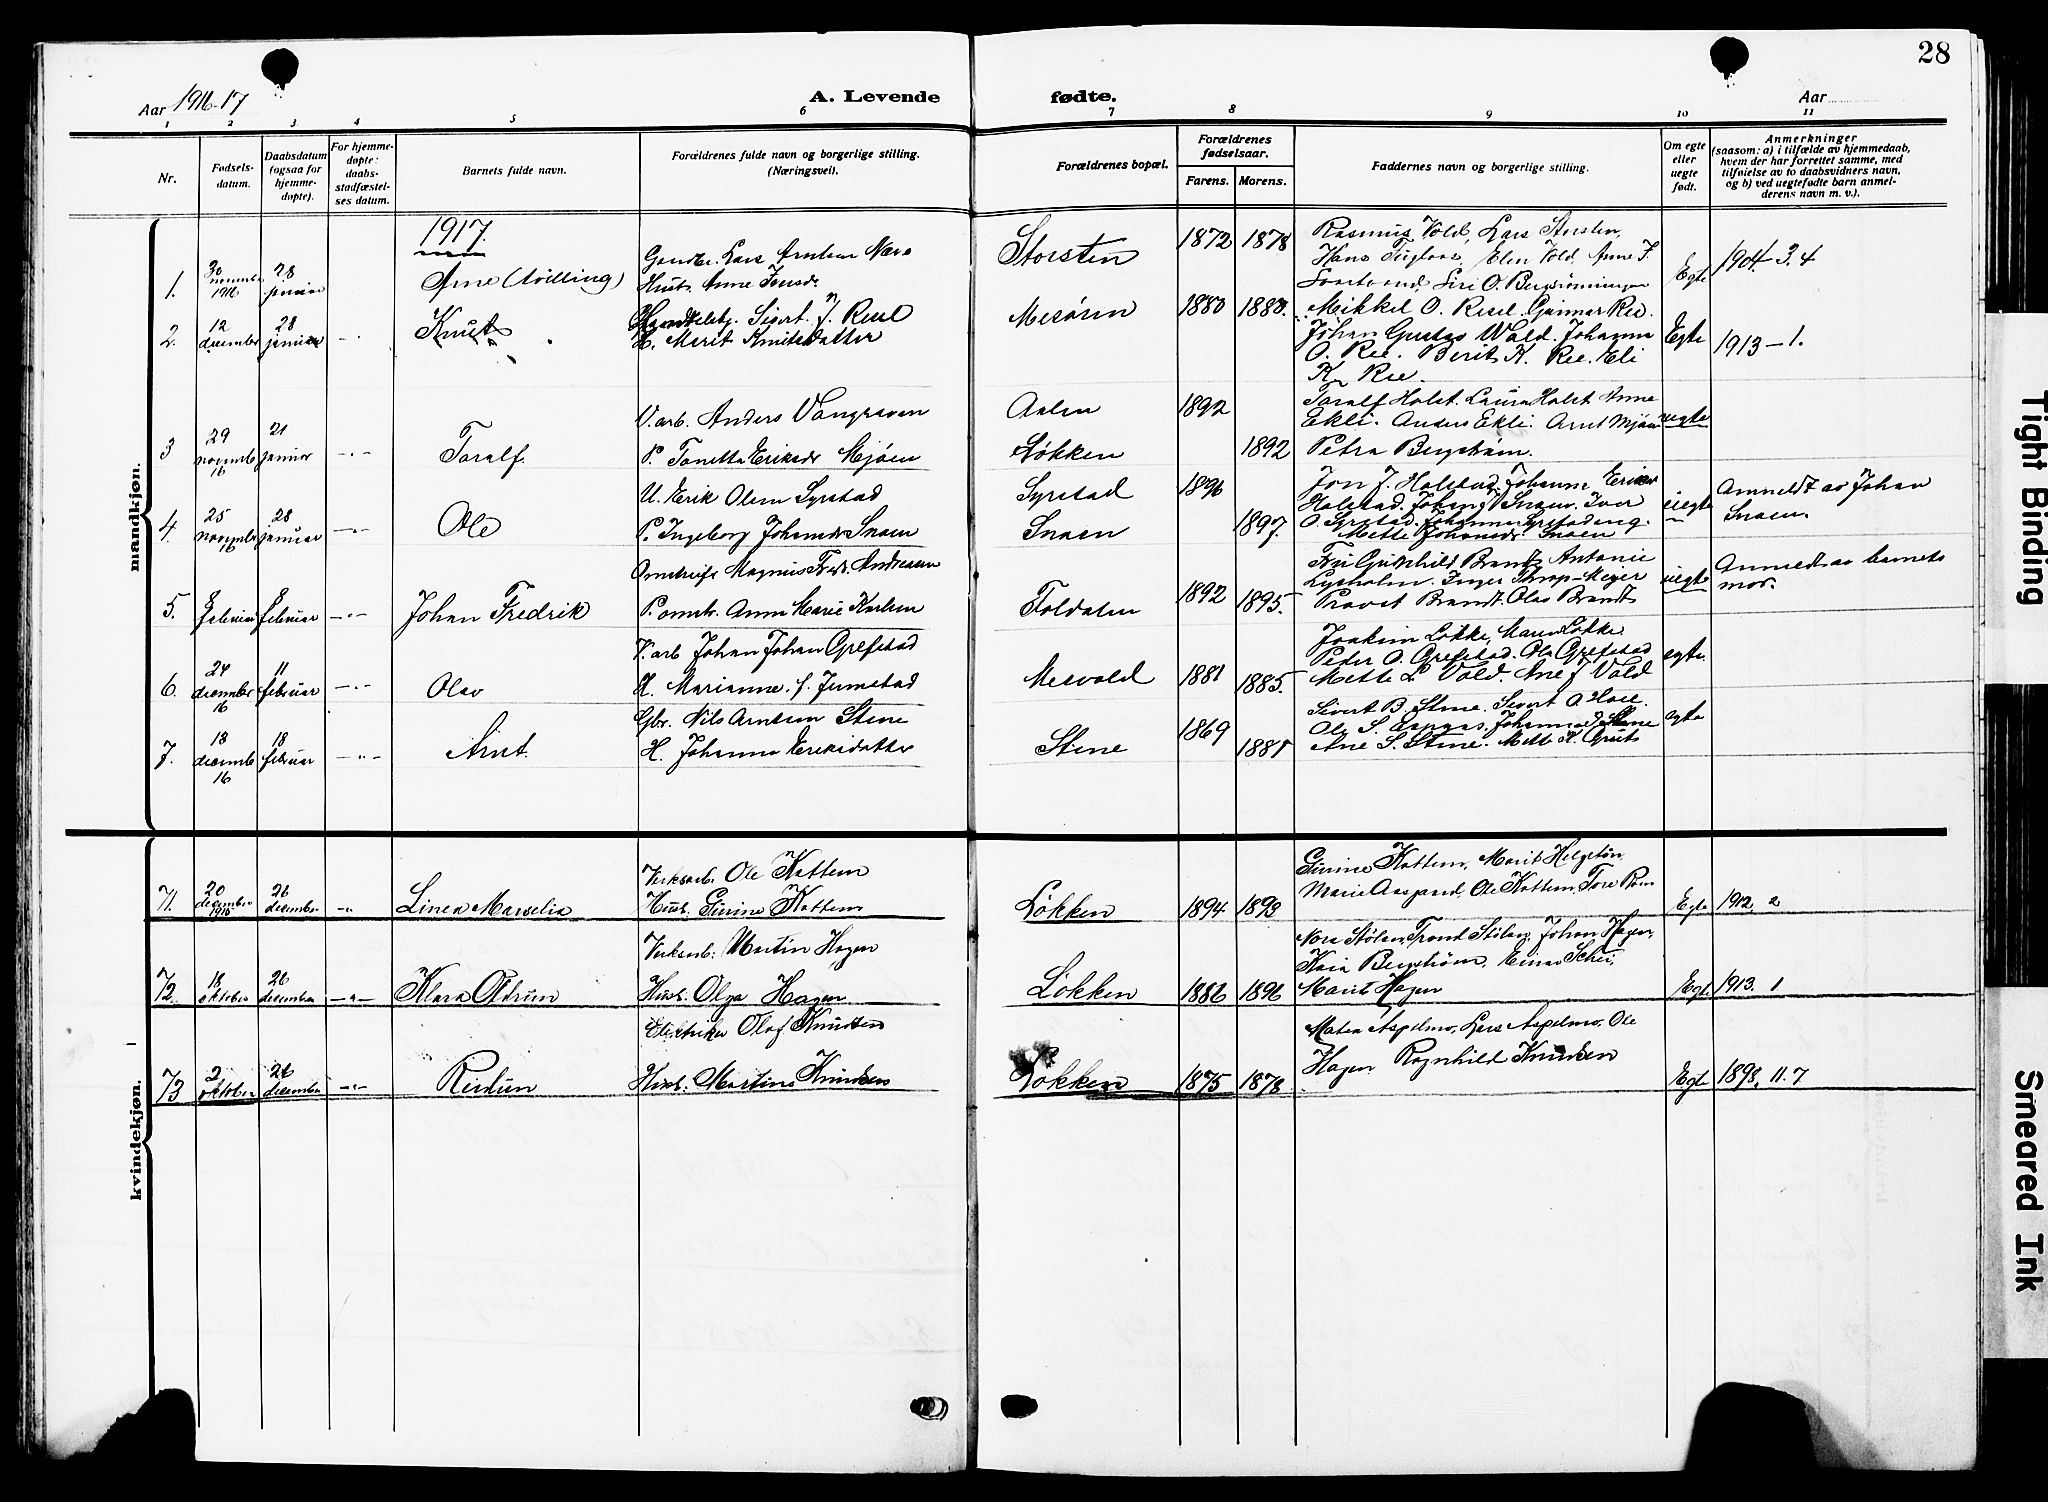 28
Aar 1916-17
A. Levende fødte.
Aar
1 2 3 4 5 6 7 8 9 10 11
Nr.
Fødsels-
datum.
Daabsdatum
(ogsaa for
hjemme-
døpte).
For hjemme-
døpte:
daabs-
stadfæstel-
ses datum.
Barnets fulde navn.
Forældrenes fulde navn og borgerlige stilling.
(Næringsvei).
Forældrenes bopæl.
Forældrenes
fødselsaar.
Farens. Morens.
Faddernes navn og borgerlige stilling.
Om egte
eller
uegte
født.
Anmerkninger
(saasom: a) i tilfælde av hjemmedaab,
hvem der har forrettet samme, med
tilføielse av to daabsvidners navn,
og b) ved uegtefødte barn anmel-
derens navn m. v.).
mandkjøn.
1917.
1.
30
november
1916
28
januar
Arne (tvilling)
Gaardbr. Lars Arntsen Næve
Hust. Anne Jensdr
Storsten
1872 1878
Rasmus Vold, Lars Storsten,
Hans, Elen Vold, Anne J.
Siri O. Bergsrønningen
Egte
1904. 3. 4
2.
12
december
28
januar
Knut
Sivert J. Resel
H. Marit Knutsdatter
Mesøren
1880 1880.
Mikkel O. Resel. Gunnar Ree.
Johan Gustav Wold. Johanna
O. Ree. Berit K. Ree. Eli
K. Ree.
Egte
1913 - 1.
3
29
novemb
16
21
januar
Toralf.
V. arb. Anders Vangraven
P. Tonetta Eriksdr Mjøen
Aalen
Løkken
1892
1892
Toralf Holst. Laura Holst Anne
Ekli. Anders Ekli. Arnt Mjøen
Petra Bergstrøm.
uegte
4.
25
november
16
28
januar
Ole
U. Erik Olsen Syrstad
P. Ingeborg Johansdr Snoen
Syrstad
Snoen
1896
1897.
Jon J. Holstad. Johanne Eriksdr
Holstad. Johan Snoen. Iver
O. Syrstad. Johanna Syrstadeng.
Mette Johansdr Snoen
uegte
Anmeldt av Johan
Snoen.
5.
8
februar
8
februar
Johan Fredrik
Magnus Fredr. Andresen
P. Anna Marie Karlsen
Foldalen
1892
1895.
Fru Gunhild Brandt Antonie
Lysholm. Inger Thrap-Meyer
Provst Brandt. Olav Brandt
uegte
Anmeldt av barnets
mor.
6.
24
december
16
11
februar
Olav
V. arb Johan Johan Grefstad
H. Marianne f. Jerpstad
Mesvold
1881
1885.
Joakim Løkke, Maren Løkke.
Peter O. Grefstad. Ola Grefstad
Mette L Vold. Ane J Vold
egte.
7.
18
decemb
16
18
februar
Arnt.
Gbr. Nils Arntsen Stene
H. Johanna Eriksdatter
Stene
1869
1881
Sivert B. Stene. Sivert O. Hoel.
Ole S., Johanna Stene
Ane S. Stene. Mette K. Grut
egte
kvindekjøn.
71.
20
december
1915
26
december
Linea Marselia
Verksarb. Ole Kattem
Hust. Gurine Kattem
Løkken
1894 1893
Gurine Kattem, Marit Helgetun,
Marie Aasgaard, Ole Kattem, Tore Rom
Egte
1912. 2
72.
18
oktober
26
december
Klara Oddrun
Verksarb. Martin Hagen
Hust. Olga Hagen
Løkken
1886 1896
Nora Stølan, Trond Stølan, Johan Hagen,
Kaia Bergstrøm, Einar Schei,
Marit Hagen
Egte
1913. 1
73
2
oktober
26
december
Reidun
Elektriker Olaf Knudsen
Hust. Martine Knudsen
Løkken
1875 1878
Maten Aspelmo, Lars Aspelmo, Ole
Hagen Ragnhild Knudsen
Egte
1898, 11. 7
Tight Binding
Smeared Ink